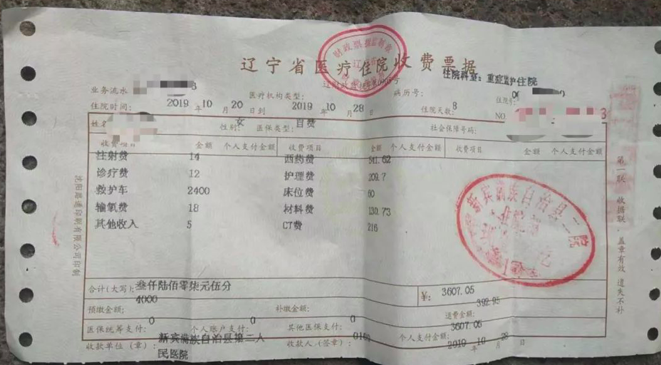 辽宁省医疗住院收费票据
住院科室：重症监护住院
业务流水
医疗机构类型：
病历号：
住院
住院时间： 2019 10月 20日 2019 10月 28日
住院天数： 8
NO
姓名 性别： 女 医保类型： 自费 社会保障号码：
收费项目 金额 个人支付金额 收费项目 金额 个人支付金额 收费项目 金额 个人支付金额
注射费 14 西药费 .62
诊疗费 12 护理费
救护车 2400 床位费 60
输氧费 18 材料费 .73
其他收入 5 CT费
合计(大写) 叁仟陆佰零柒元伍分 ￥： 3607.05
预缴金额： 4000 补缴金额： 退费金额： 392.95
医保统筹支付： 0 个人账户支付： 0 其他医保支付： 0 个人支付金额： 3607.05
收款单位（章）： 新宾满族自治县第二人民医院 收款人（签章）： 2019 10月 28日
新宾满族自治县二院
第一联 收据联 盖章有效 遗失不补